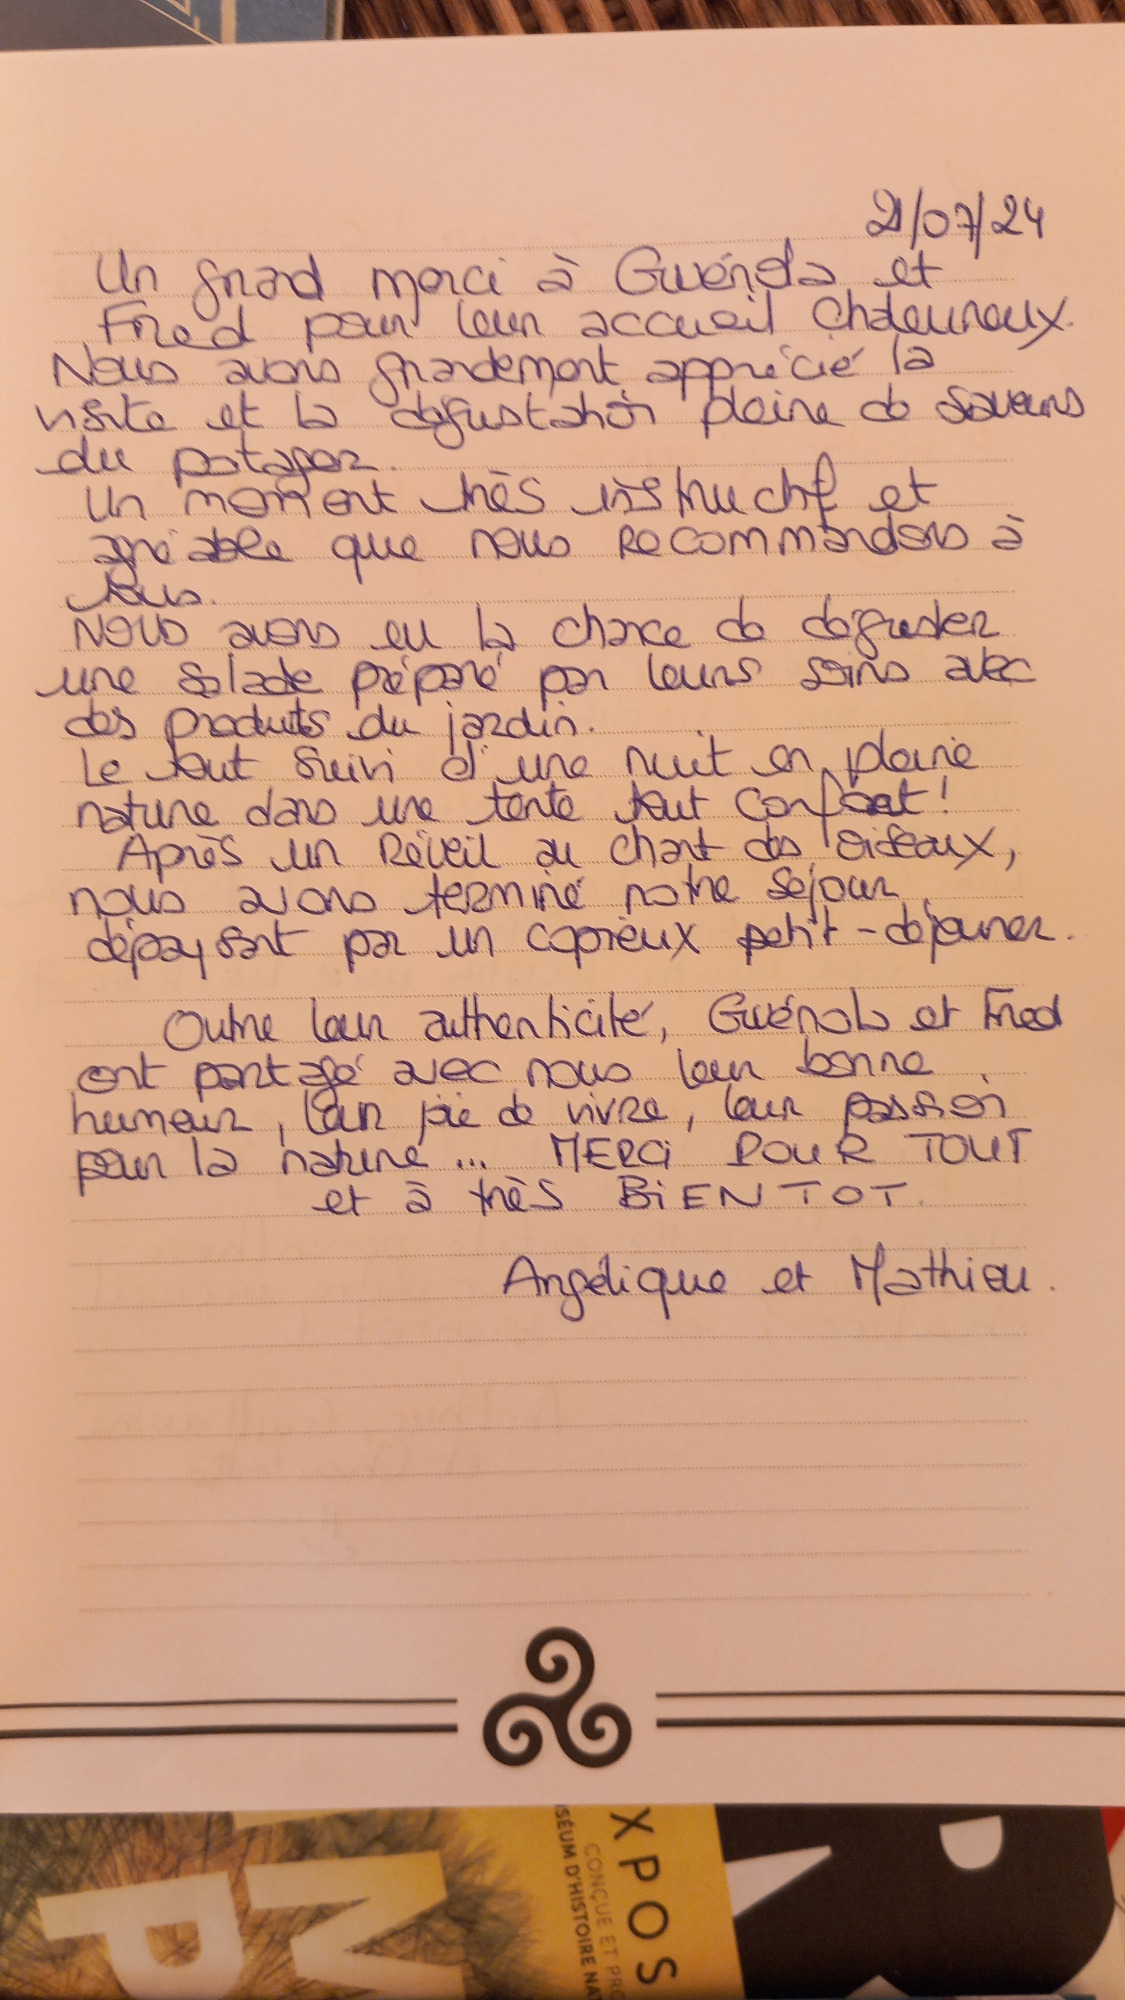 21/07/24
Un grand merci à Gwénola et
Fred pour leur accueil chaleureux.
Nous avons grandement apprécié la
visite et la dégustation pleine de saveurs
du potager.
Un moment très instructif et
agréable que nous recommandons à
tous.
Nous avons eu la chance de déguster
une salade préparé par leurs soins avec
des produits du jardin.
Le tout suivi d'une nuit en pleine
nature dans une tente tout confort !
Après un Réveil au chant des oiseaux,
nous avons terminé notre séjour
dépaysant par un copieux petit-déjeuner.
Outre leur authenticité, Gwénola et Fred
ont partagé avec nous leur bonne
humeur, leur joie de vivre, leur passion
pour la nature... MERCI POUR TOUT
et à très BIENTOT.
Angélique et Mathieu.
XPOS
CONÇUE ET PRO
SÉUM D'HISTOIRE NAT